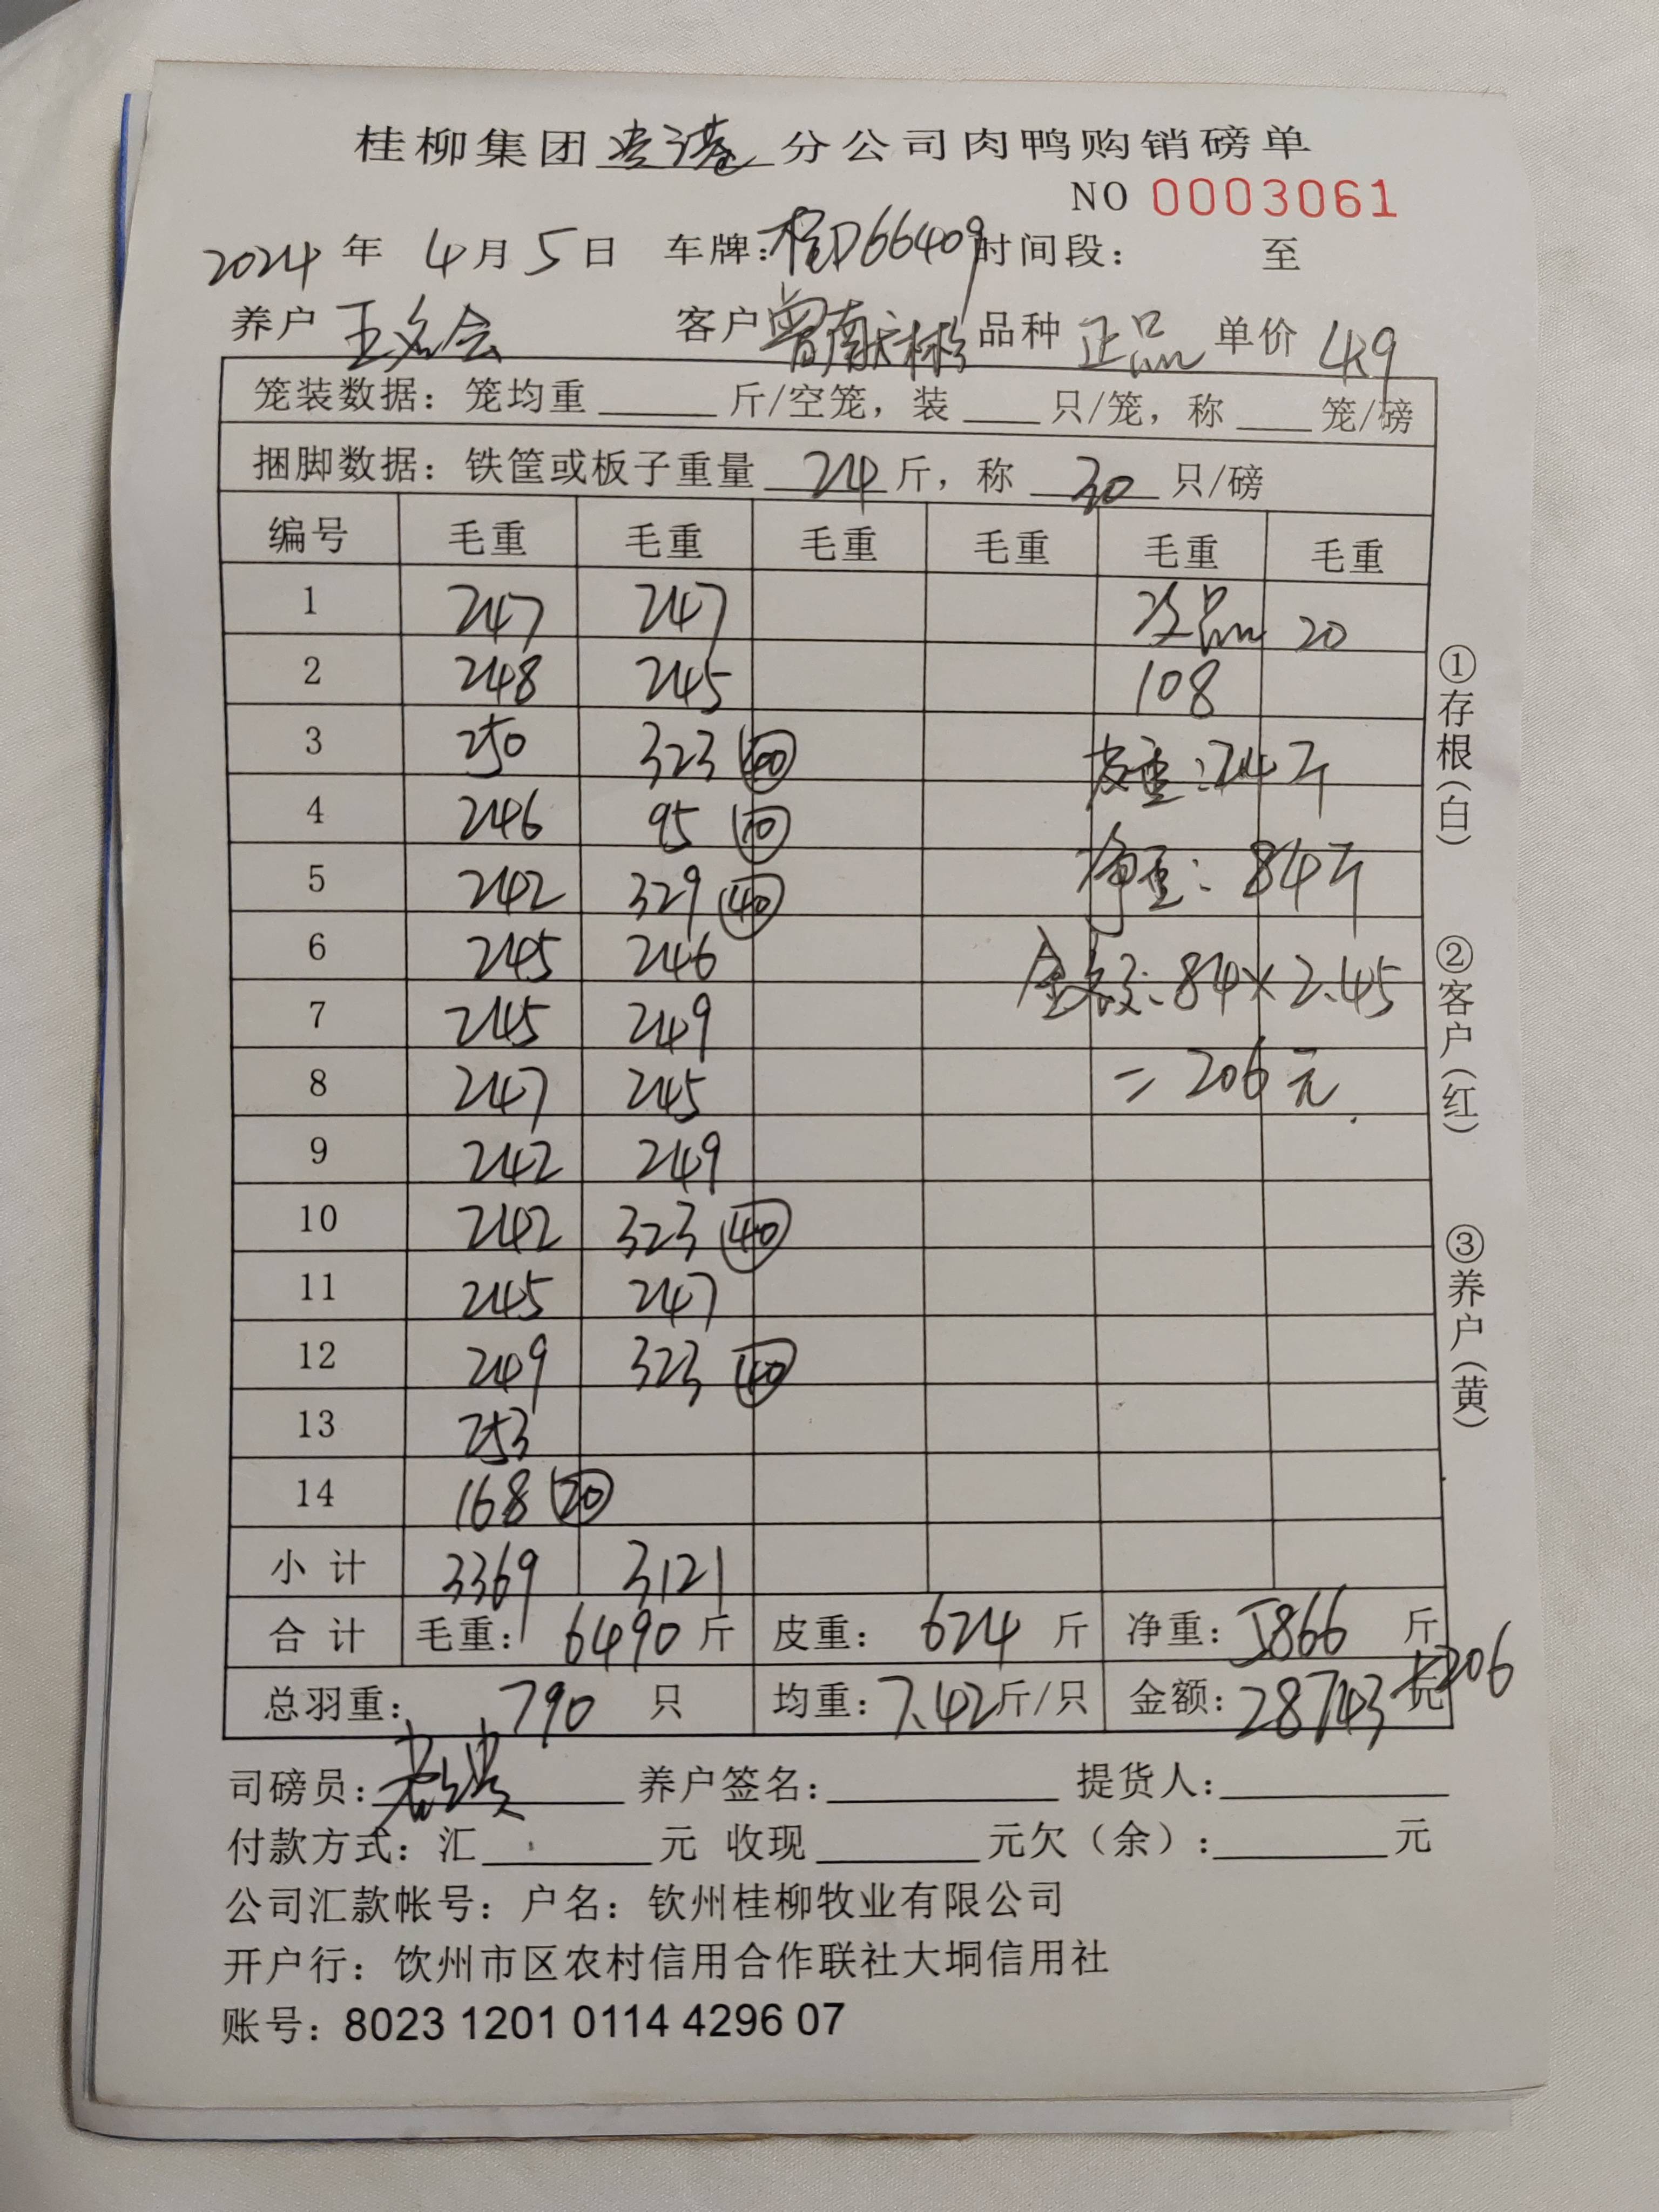 桂柳集团贵港分公司肉鸭购销磅单
NO 0003061
2024年 4月5日 车牌：桂D66409 时间段： 至
养户 王名会 客户 曾献彬 品种 正品 单价 4.9
笼装数据：笼均重____斤/空笼，装____只/笼，称____笼/磅
捆脚数据：铁筐或板子重量 24 斤，称 30 只/磅
编号 毛重 毛重 毛重 毛重 毛重 毛重
1 247 247 次品 20
2 248 245 108
3 250 323 (40) 皮重：24斤
4 246 95 (10)
5 242 329 (40) 净重：84斤
6 245 246 金额：84×2.45
7 245 249
8 247 245 = 206元.
9 242 249
10 242 323 (40)
11 245 247
12 249 323 (40)
13 253
14 168 (20)
小 计 3369 3121
合 计 毛重：6490斤 皮重：624斤 净重：5866斤
总羽重：790只 均重：7.42斤/只 金额：28743元+206
司磅员：____ 养户签名：____ 提货人：____
付款方式：汇____元 收现____元欠（余）：____元
公司汇款帐号：户名：钦州桂柳牧业有限公司
开户行：饮州市区农村信用合作联社大垌信用社
账号：8023 1201 0114 4296 07
①存根（白）
②客户（红）
③养户（黄）